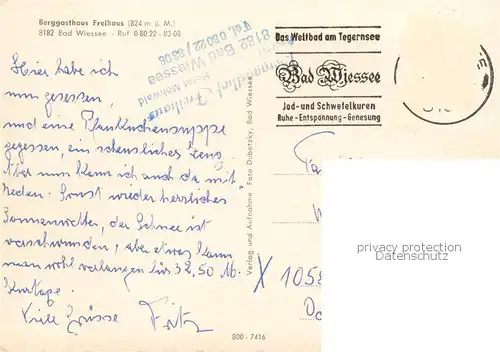 Berggasthaus Freihaus (824 m ü. M.)
8182 Bad Wiessee - Ruf 0 80 22 - 83 03
Berggasthof Freihaus
Horst Mohwald
8182 Bad Wiessee
Tel. 08022 / 8308
Das Weltbad am Tegernsee
Bad Wiessee
Jod- und Schwefelkuren
Ruhe - Entspannung - Genesung
Hier habe ich
nun gesessen,
und eine Pfannkuchensuppe
gegessen, ein scheussliches Zeug.
Aber nun kann ich auch da mit
reden. Sonst wieder herrliches
Sonnenwetter, der Schnee ist
verschwunden, aber etwas kann
man wohl verlangen für 32,50 M.
Kurtaxe.
Viele Grüsse Fritz
Verlag und Aufnahme Foto Dubotzky, Bad Wiessee
X 105
800 - 7416
privacy protection
Datenschutz